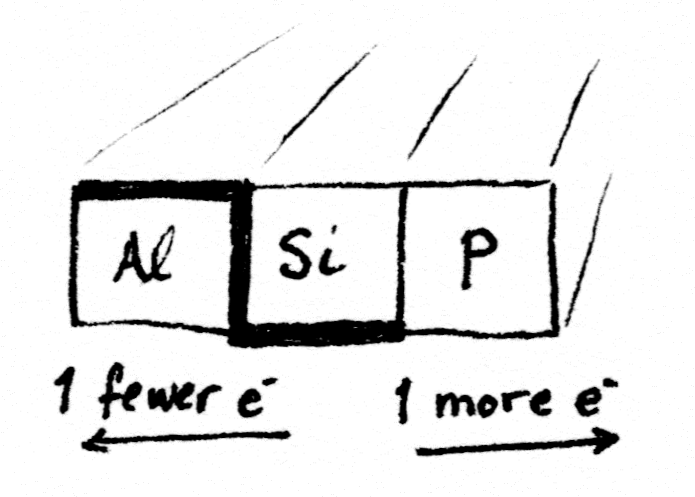 Al Si P
1 fewer e⁻ 1 more e⁻